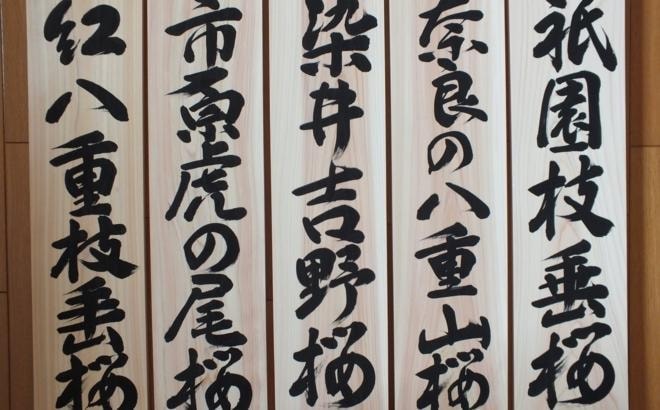 祇園枝垂桜
奈良の八重山桜
染井吉野桜
市原虎の尾桜
紅八重枝垂桜